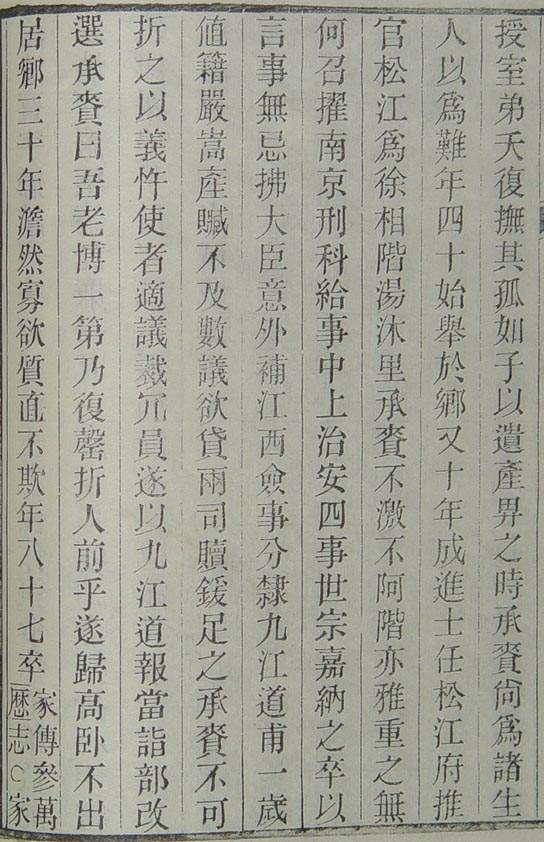 授室弟夭復撫其孤如子以遺產畀之時承賚尙爲諸生
人以爲難年四十始舉於鄉又十年成進士任松江府推
官松江爲徐相階湯沐里承賚不激不阿階亦雅重之無
何召擢南京刑科給事中上治安四事世宗嘉納之卒以
言事無忌拂大臣意外補江西僉事分隸九江道甫一歲
値籍嚴嵩產贓不及數議欲貸兩司贖鍰足之承賚不可
折之以義忤使者適議裁冗員遂以九江道報當詣部改
選承賚曰吾老博一第乃復罄折人前乎遂歸高卧不出
居鄉三十年澹然寡欲質直不欺年八十七卒家傳參萬
歷志○家